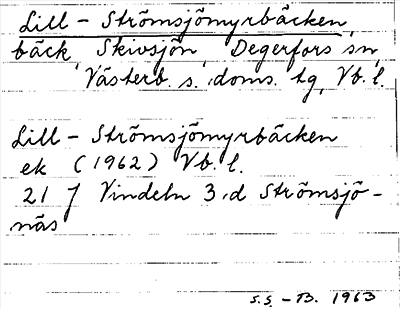 Lill-Strömsjömyrbäcken,
bäck, Skivsjön, Degerfors sn,
Västerb. s. doms. tg, Vb. l.
Lill-Strömsjömyrbäcken
ek (1962) Vb. l.
21 J Vindeln 3 d Strömsjö-
näs
S.S. - B. 1963